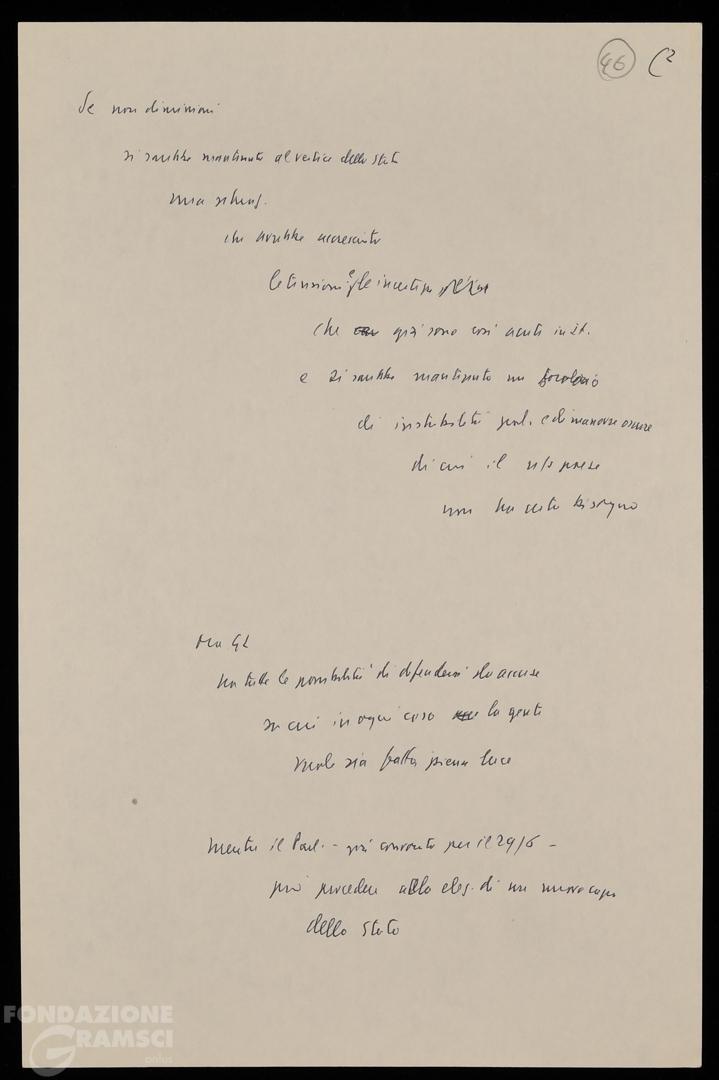 46 (2
Se non dimissioni
si sarebbe mantenuta al vertice dello Stato
una
che avrebbe accresciuto
le tensioni e le incertezze
che già sono così acute in It.
e si sarebbe mantenuto un focolaio
di instabilità e di manovre oscure
di cui il n/s paese
non ha certo bisogno
Ora GL
ha tutte le possibilità di difendersi da accuse
su cui in ogni caso la gente
vuole sia fatta piena luce
Mentre il Parl. - già convocato per il 29/6 -
può procedere alla elez. di un nuovo capo
dello Stato
FONDAZIONE
GRAMSCI
onlus